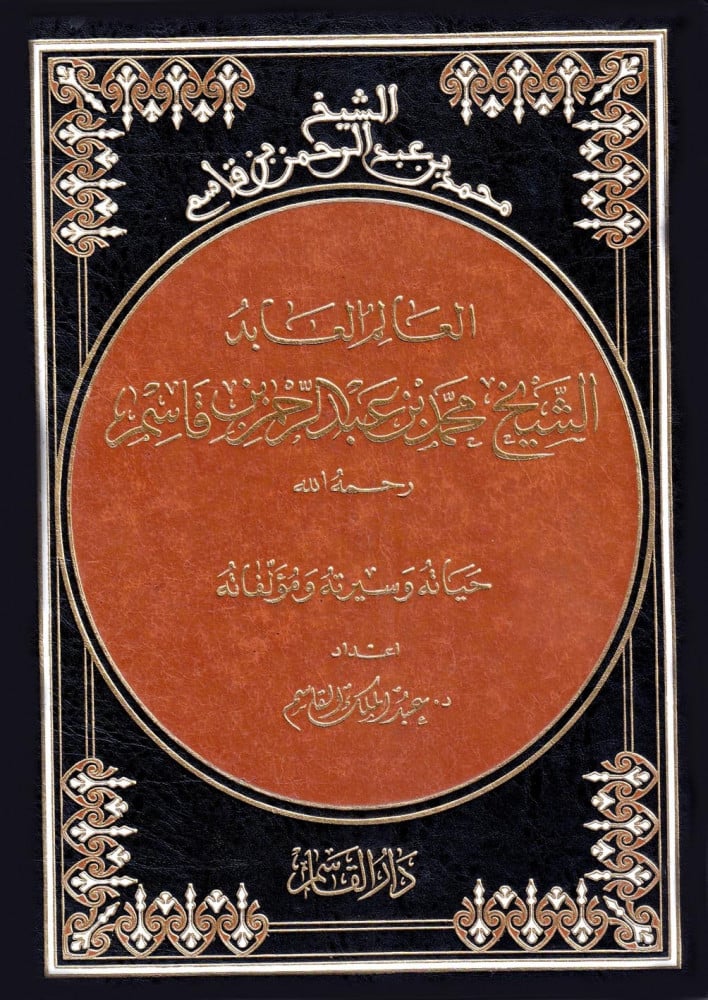 الشيخ
محمد بن عبد الرحمن بن قاسم
العالم العابد
الشَّيْخ محمَّد بْن عَبْد الرَّحْمن بن قَاسِم
رحمهُ الله
حَيَاتهُ وَسيرتهُ وَمُؤلّفاتهُ
اعداد
د. عبد الملك القاسم
دَارُ القَاسِم